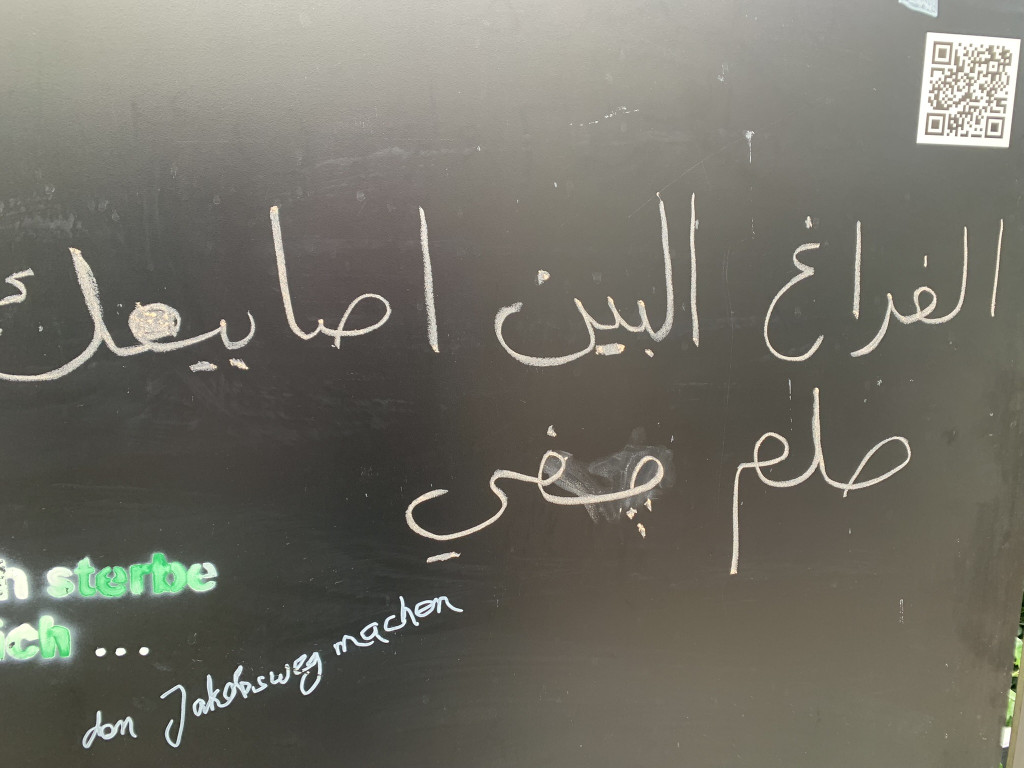 الفراغ البين اصابيعك
حلم چفي
n sterbe
ich ...
den Jakobsweg machen